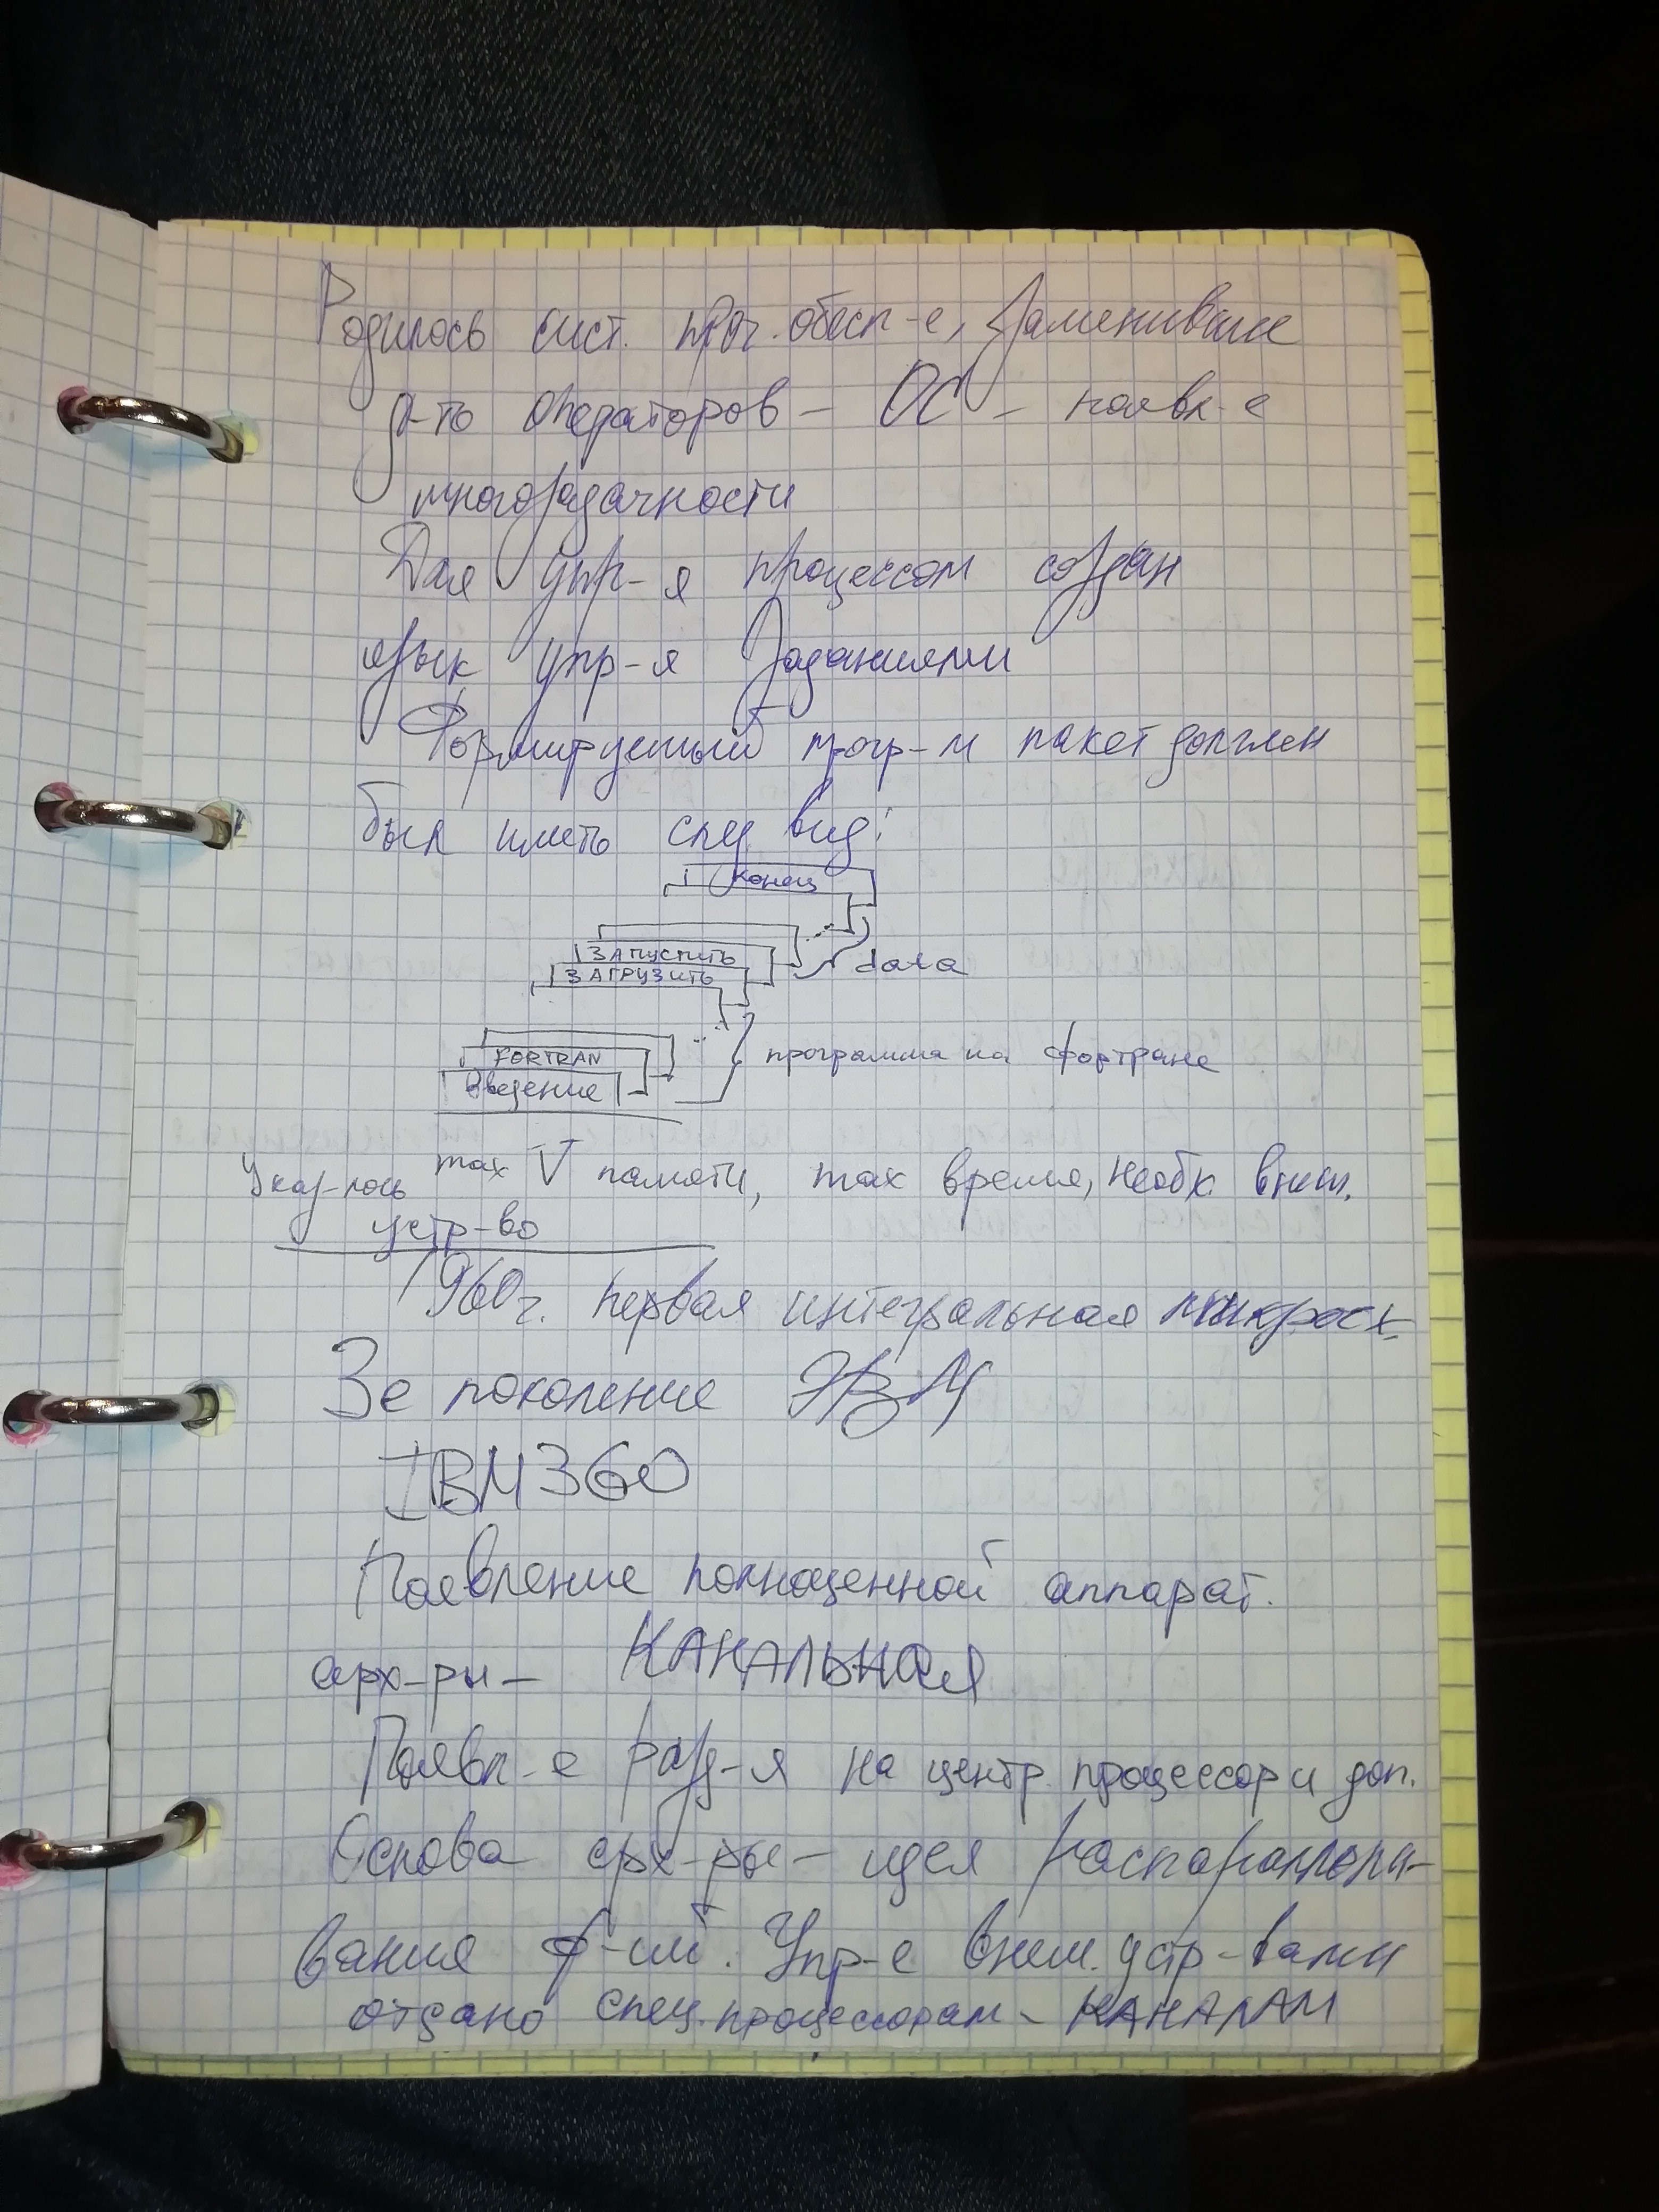 Родилось сист. прог. обесп-е, заменившие
д-ть операторов – ОС – появл-е
многозадачности
Для упр-я процессом создан
язык упр-я заданиями
Формируемый прогр-м пакет должен
был иметь след вид:
конец
ЗАПУСТИТЬ
data
ЗАГРУЗИТЬ
FORTRAN
программа на фортране
Введение
Указ-лось max V памяти, max время, необх. внеш.
устр-во
1960г. первая интегральная микросх.
3е поколение ЭВМ
IBM 360
Появление полноценной аппарат.
арх-ры – КАНАЛЬНАЯ
Появл-е разд-я на центр. процессор и доп.
Основа арх-ры – идея распараллели-
вания ф-ий. Упр-е внеш. устр-вами
отдано спец. процессорам – КАНАЛАМ